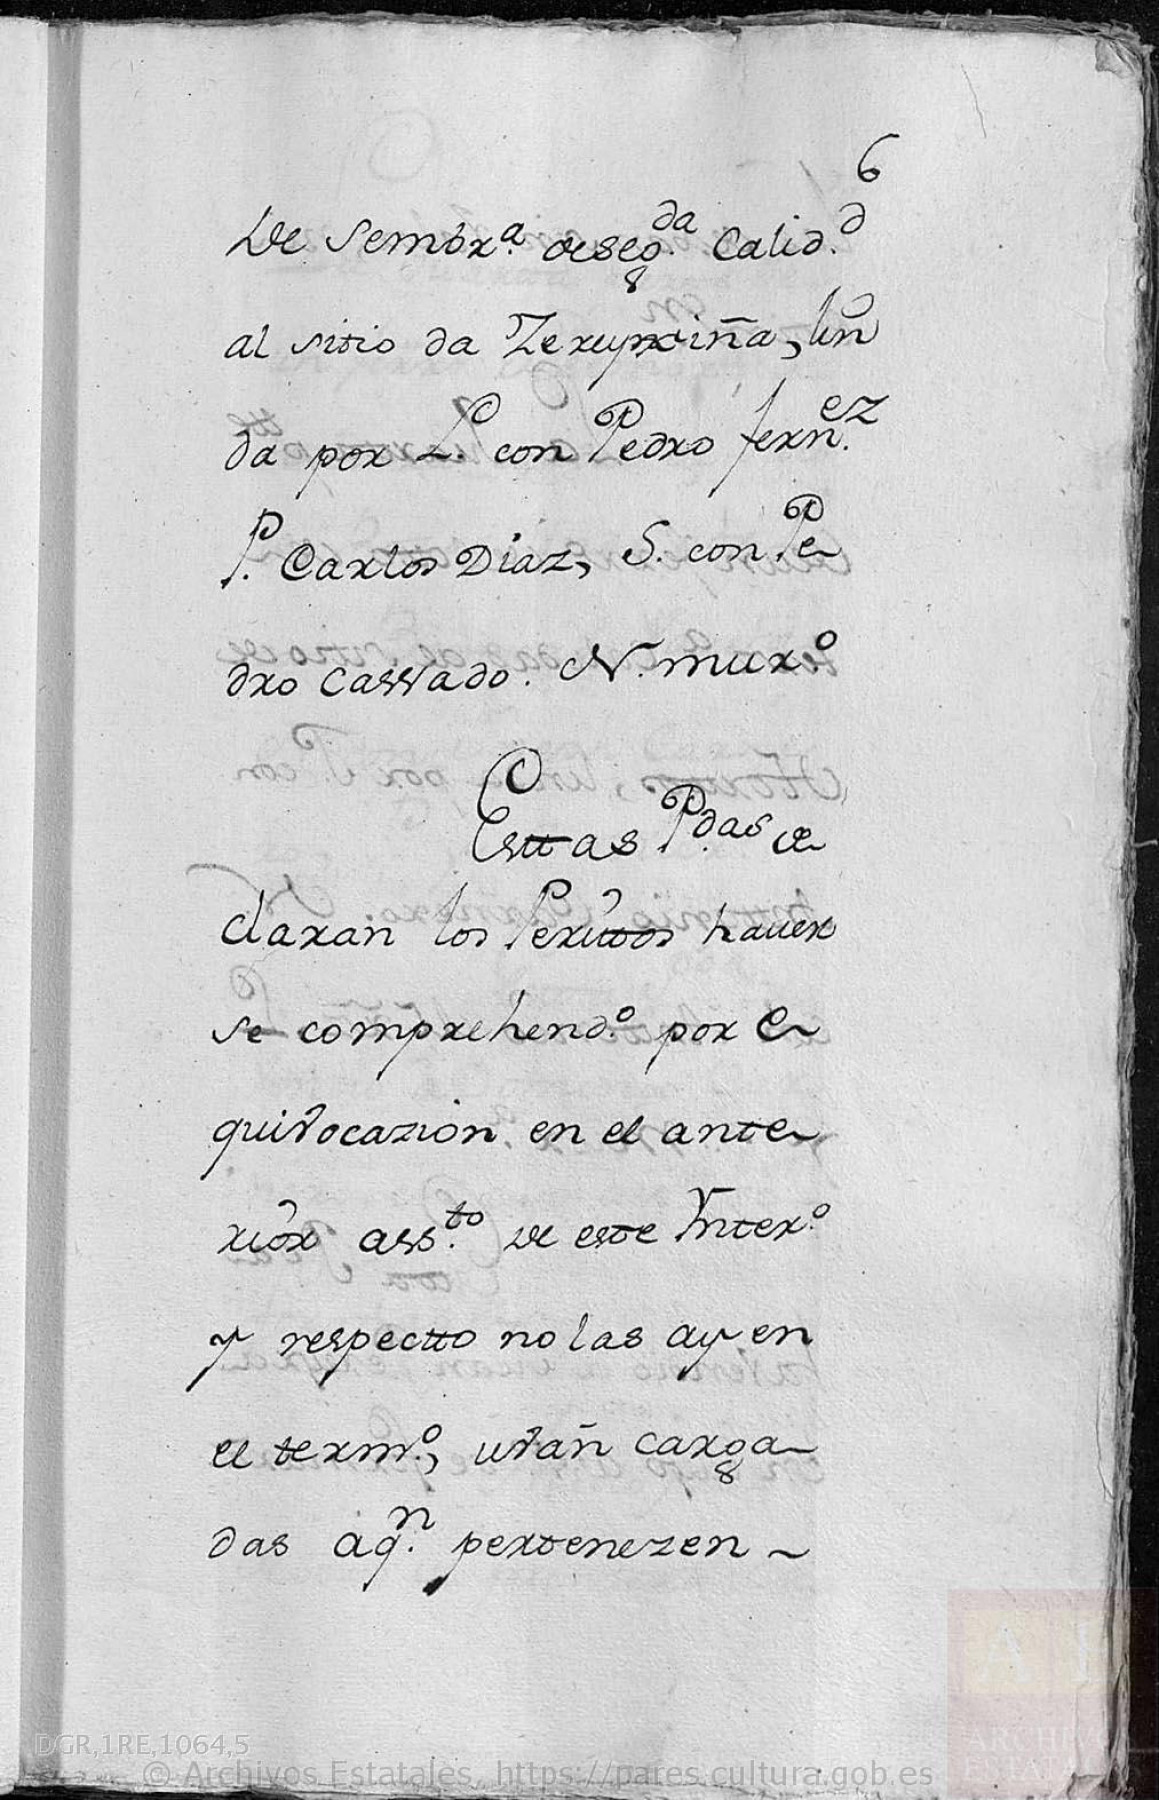 6
De Sembr.ª deseg.da Calid.d
al sitio da Zeruxtiña, lin
da por L. con Pedro fern.ez
P. Carlos Diaz, S. con Pe
dro Cassado. N. mur.º
Esttas P.das de
claran los Perittos haver
se comprehend.º por e
quivocazion en el ante
rior ass.to de este Ynter.º
y respectto no las ay en
el term.º, ban carga
das aq.n pertenezen
DGR,1RE,1064,5
© Archivos Estatales, https://pares.cultura.gob.es
ARCHIVOS
ESTATALES